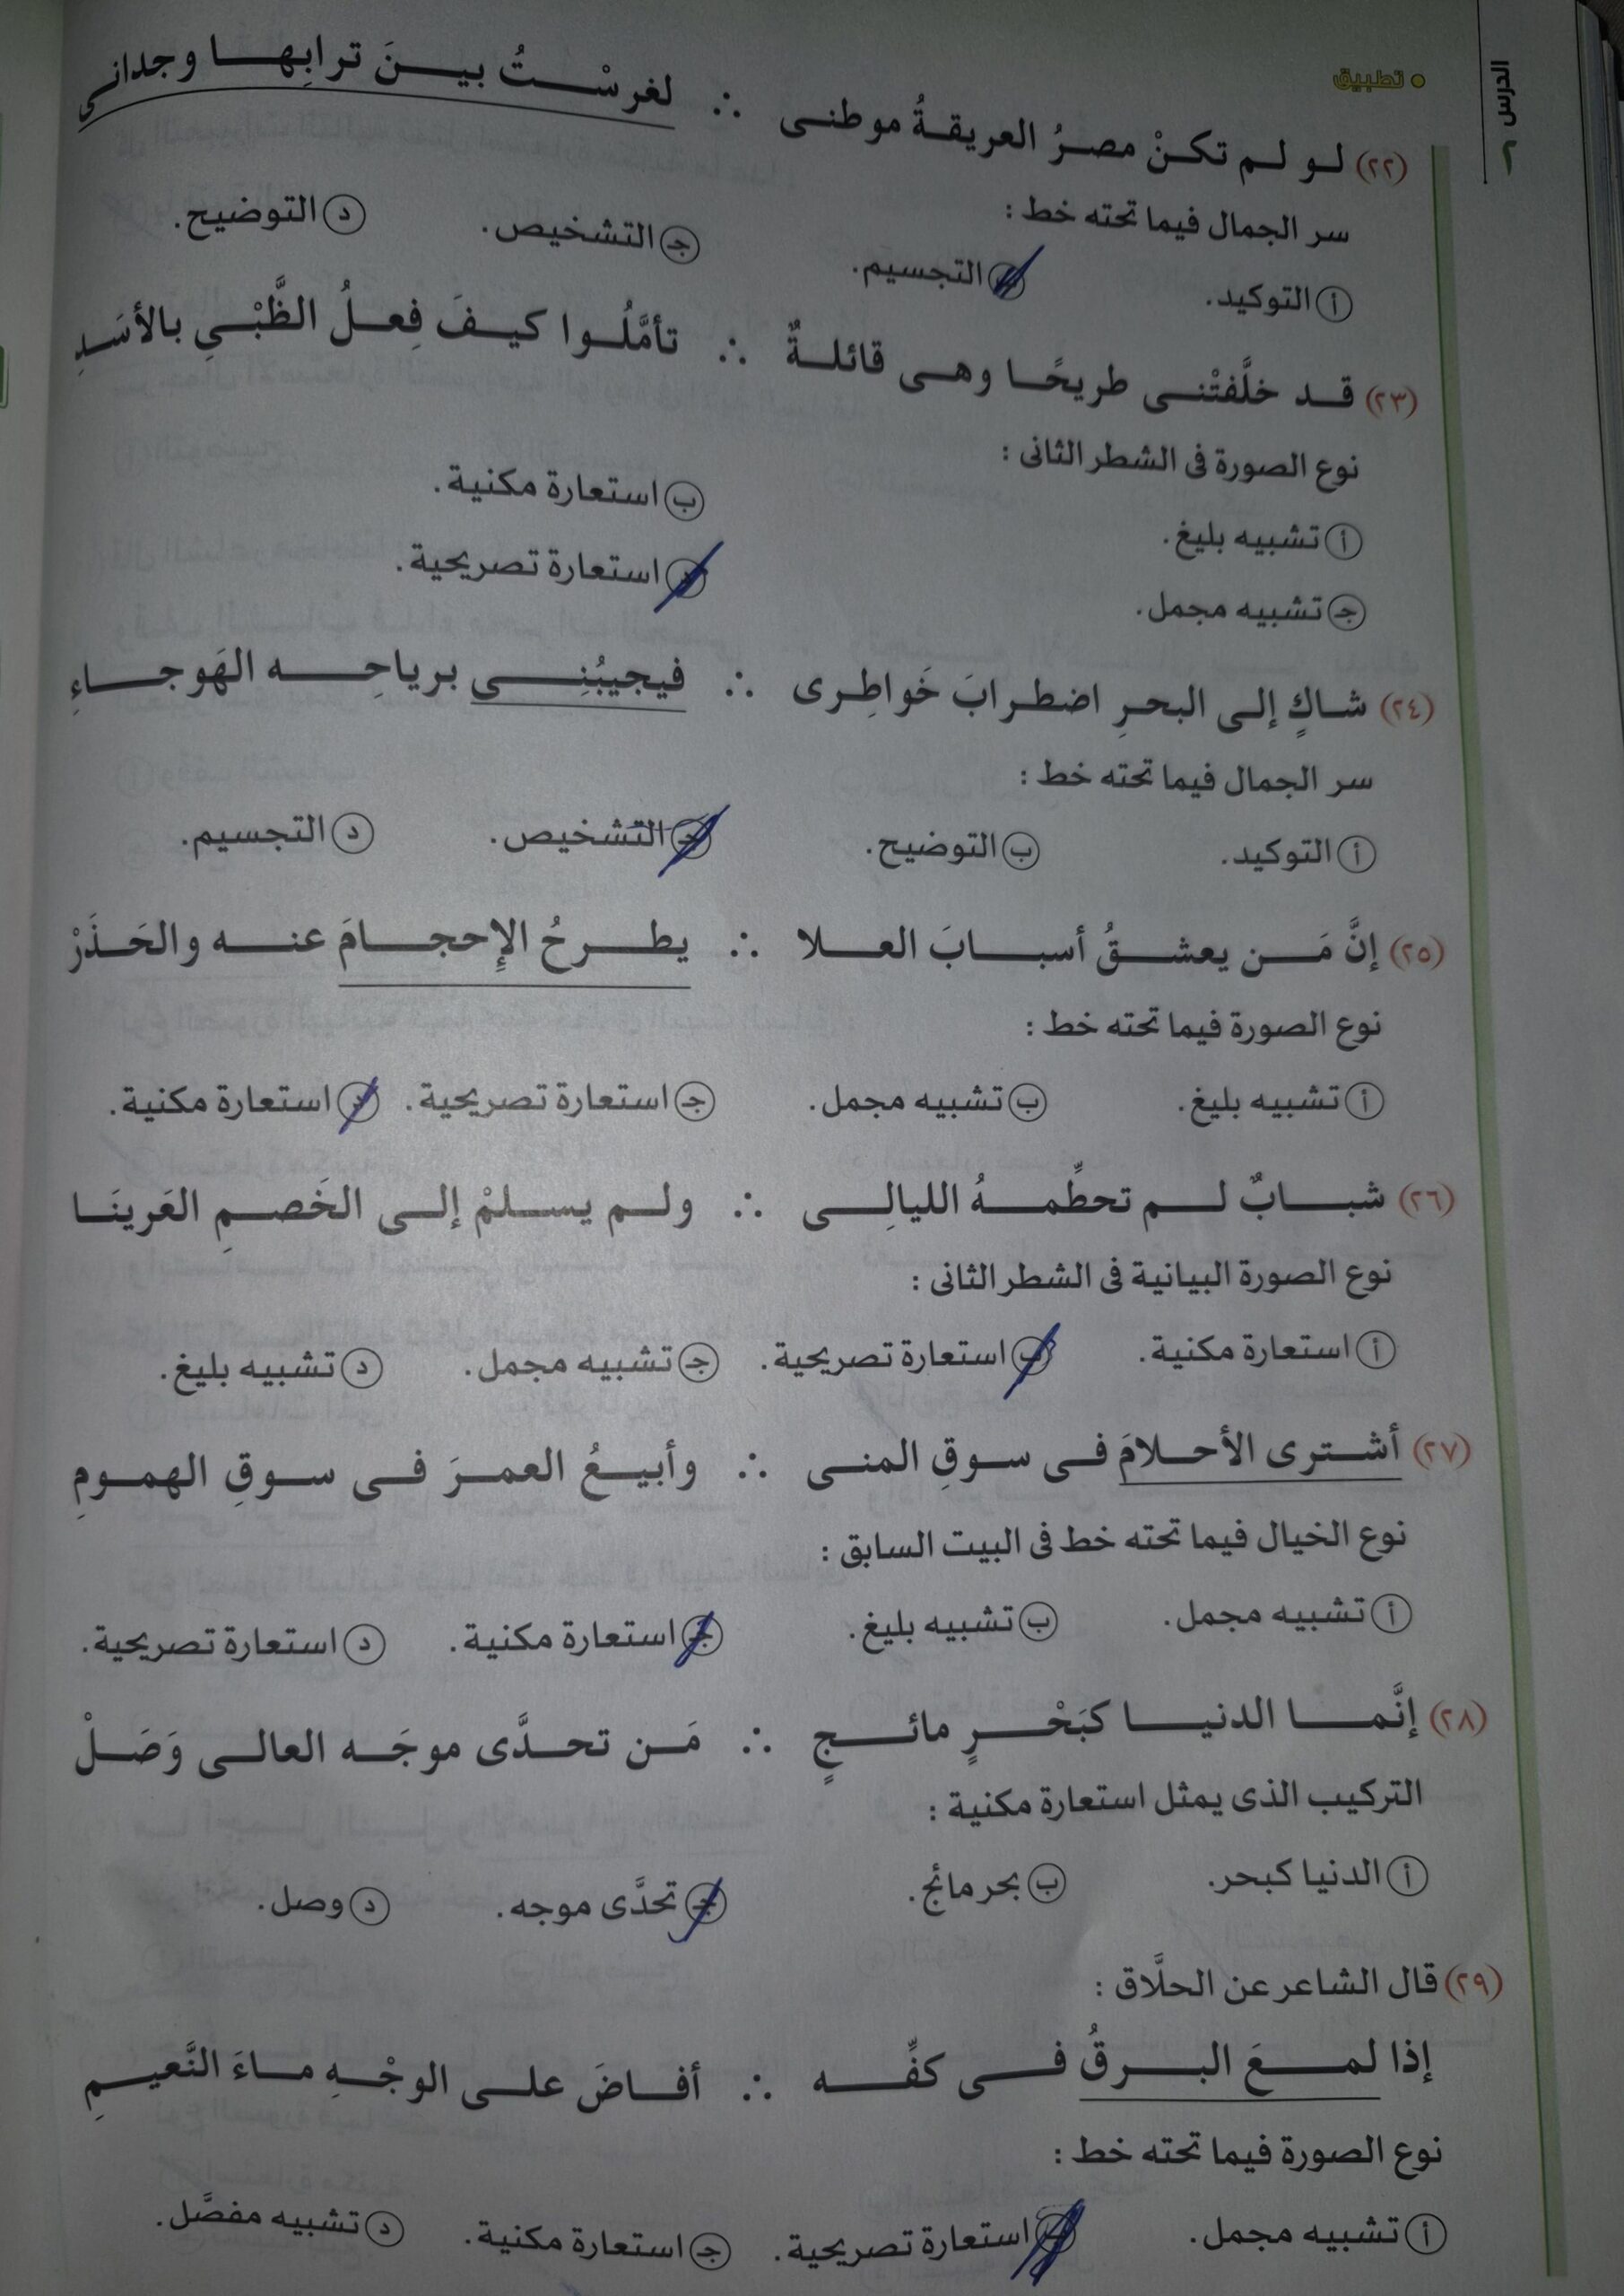 الدرس ٢
• تطبيق
(٢٢) لو لم تكنْ مصرُ العريقةُ موطنى ∴ لغرسْتُ بينَ ترابِها وجدانى
سر الجمال فيما تحته خط :
أ التوكيد. ب التجسيم. جـ التشخيص. د التوضيح.
(٢٣) قد خلَّفتْنى طريحًا وهى قائلةٌ ∴ تأمَّلُوا كيفَ فِعلُ الظَّبْيِ بالأسَدِ
نوع الصورة فى الشطر الثانى :
أ تشبيه بليغ. ب استعارة مكنية.
جـ تشبيه مجمل. د استعارة تصريحية.
(٢٤) شاكٍ إلى البحرِ اضطرابَ خَواطِرى ∴ فيجيبُنِى برياحِه الهَوجاءِ
سر الجمال فيما تحته خط :
أ التوكيد. ب التوضيح. جـ التشخيص. د التجسيم.
(٢٥) إنَّ مَن يعشقُ أسبابَ العلا ∴ يطرحُ الإحجامَ عنه والحَذَرْ
نوع الصورة فيما تحته خط :
أ تشبيه بليغ. ب تشبيه مجمل. جـ استعارة تصريحية. د استعارة مكنية.
(٢٦) شبابٌ لم تحطِّمهُ الليالِى ∴ ولم يسلمْ إلى الخَصمِ العَرينَا
نوع الصورة البيانية فى الشطر الثانى :
أ استعارة مكنية. ب استعارة تصريحية. جـ تشبيه مجمل. د تشبيه بليغ.
(٢٧) أشترى الأحلامَ فى سوقِ المنى ∴ وأبيعُ العمرَ فى سوقِ الهمومِ
نوع الخيال فيما تحته خط فى البيت السابق :
أ تشبيه مجمل. ب تشبيه بليغ. جـ استعارة مكنية. د استعارة تصريحية.
(٢٨) إنَّما الدنيا كبَحْرٍ مائجٍ ∴ مَن تحدَّى موجَه العالى وَصَلْ
التركيب الذى يمثل استعارة مكنية :
أ الدنيا كبحر. ب بحر مائج. جـ تحدَّى موجه. د وصل.
(٢٩) قال الشاعر عن الحلَّاق :
إذا لمعَ البرقُ فى كفِّه ∴ أفاضَ على الوجْهِ ماءَ النَّعيمِ
نوع الصورة فيما تحته خط :
أ تشبيه مجمل. ب استعارة تصريحية. جـ استعارة مكنية. د تشبيه مفصَّل.